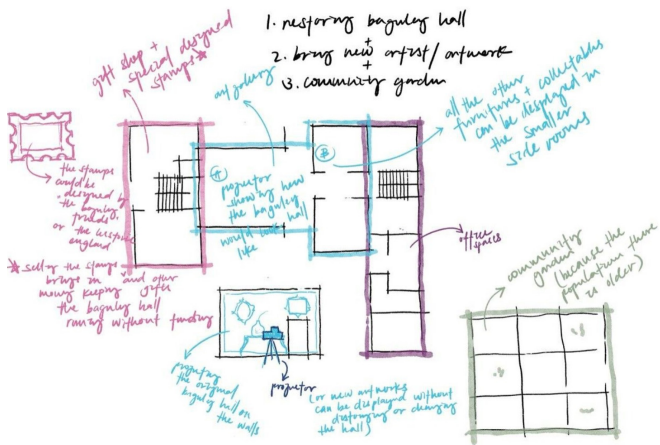 1. restoring baguley hall
+
2. bring new artist/artwork
+
3. community garden
gift shop +
special designed
stamps*
art gallery
all the other
furnitures + collectables
can be displayed in
the smaller
side rooms
the stamps
could be
designed by
the baguley
friends,
or the
england
* selling the stamps and other
brings in gifts
money keeping
the baguley hall
running without funding
A
projector
showing how
the baguley
hall
would look
like
B
office
spaces
community
garden
(because the
population there
is older)
projecting
the original
baguley hall on
the walls
projector
(or new artworks
can be displayed without
distorting or damaging
the hall)